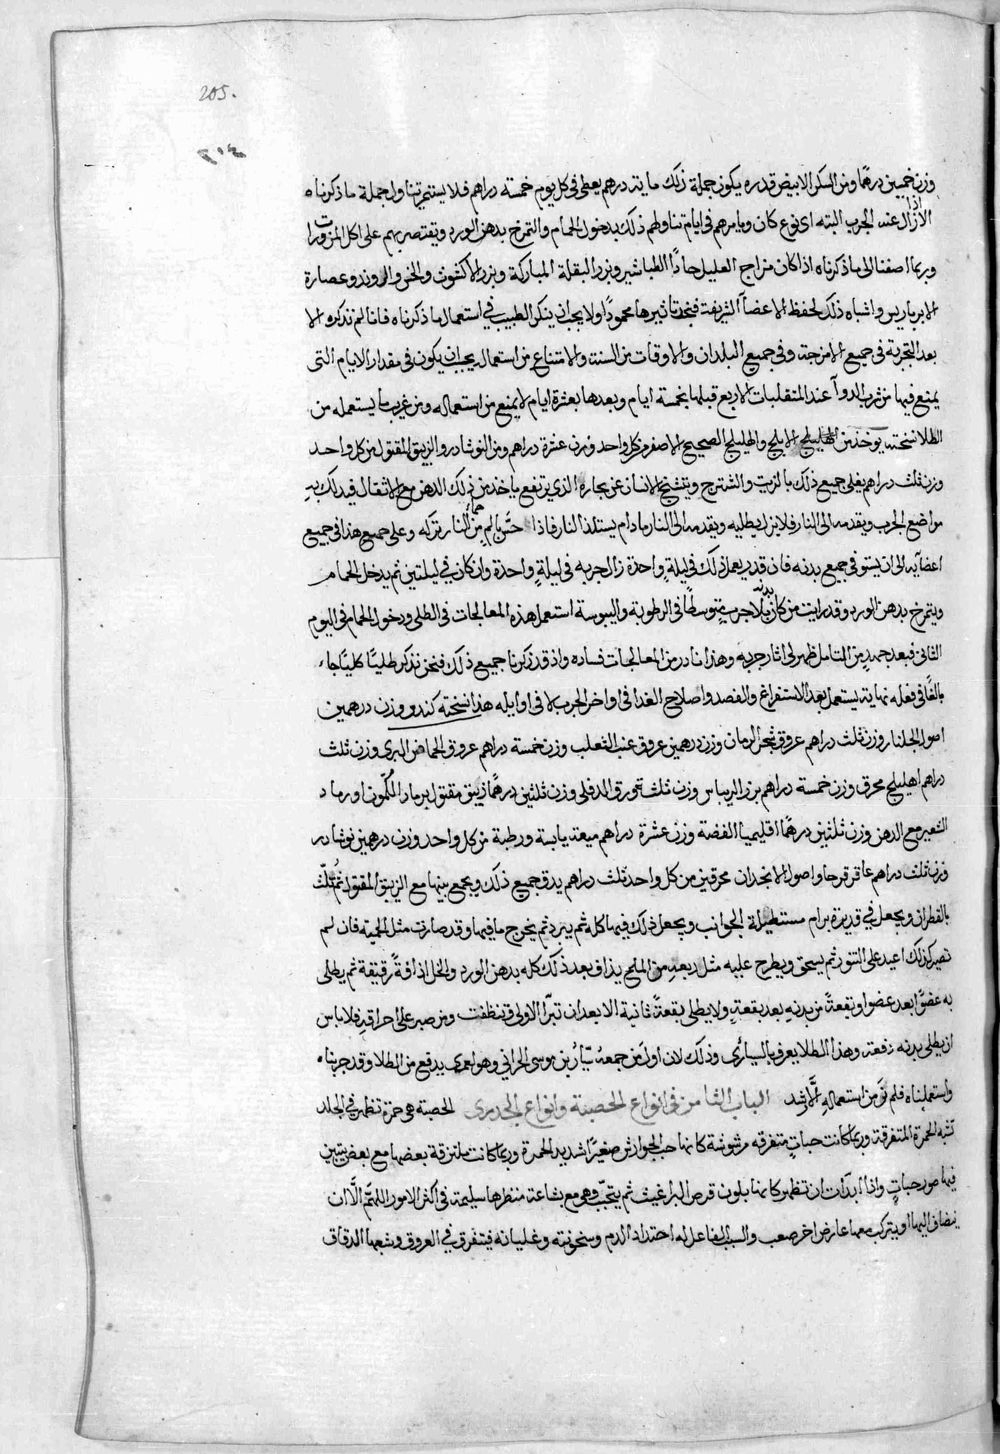 205.
٢٠٤
وزن خمسين درهما ومن السكر الابيض قدره يكون جملة ذلك مايه درهم يعطى فى كل يوم خمسة دراهم فلا يستتم تناول جملة ما ذكرناه
الا زال عنه الجرب البته اى نوع كان ويامرهم فى ايام تناولهم ذلك بدخول الحمام والتمرخ بدهن الورد ويقتصر بهم على اكل المزورات
وربما اضفنا الى ما ذكرناه اذا كان مزاج العليل حادًّا الطباشير وبزر البقلة المباركة وبزر الاكشوث والخس والروند وعصارة
الامبرباريس واشباه ذلك لحفظ الاعضاء الشريفة فنجد تاثيرها محمودًا ولا يجب ان ينكر الطبيب فى استعمال ما ذكرناه فانا لم نذكره الا
بعد التجربة فى جميع الامزجة وفى جميع البلدان والاوقات من السنة والامتناع من استعماله يجب ان يكون فى مقدار الايام التى
يمنع فيها من شرب الدوآ عند المنقلبات الاربع قبلها بخمسة ايام وبعدها بعشرة ايام لا يمنع من استعماله ومن غريب ما يستعمله من
الطلا نسخته يوخذ من الهليلج الاملج والهليلج الصحيح الاصفر من كل واحد وزن عشرة دراهم ومن النوشادر والزيبق المقتول من كل واحد
وزن ثلث دراهم يغلى جميع ذلك بالزيت والشيرج ويتنحى الانسان عن بخاره الذى يرتفع ياخذ من ذلك الدهن مع الاثفال فيدلك به
مواضع الجرب ويقدمه الى النار فلا يزل يطليه ويقدمه الى النار مادام يستلذ النار فاذا حسّ بالم من النار تركه وعلى جميع هذا فى جميع
اعضآيه الى ان يستوفى جميع بدنه فان قدر يعمل ذلك فى ليلة واحدة زال جربه فى ليلةٍ واحدة وان كان فى ليلتين ثم يدخل الحمام
ويتمرخ بدهن الورد وقد رايت من كان بدنه جرب متوسطًا فى الرطوبة واليبوسة استعمل هذه المعالجات فى الطلى ودخول الحمام فى اليوم
الثانى فبعد جهدٍ من التامل ظهر لى اثار جربه وهذا نادر من المعالجات فساده واذ قد ذكرنا جميع ذلك فنحن نذكر طليًا كليًا جاء
بالغًا فى فعله نهايته يستعمل بعد الاستفراغ والفصد واصلاح الغدا فى اواخر الجرب لا فى اوايله هذا نسخته كندر وزن درهمين
اصول الجلنار وزن ثلث دراهم عروق شجر الرمان وزن درهمين عروق عنب الثعلب وزن خمسة دراهم عروق الحماض البرى وزن ثلث
دراهم اهليلج محرق وزن خمسة دراهم بزر الريباس وزن ثلث ورق الدفلى وزن ثلثين درهمًا زيبق مقتول برماد الكمون او رماد
الشعير مع الدهن وزن ثلثين درهمًا اقليميا الفضة وزن عشرة دراهم ميعة يابسة ورطبة من كل واحد وزن درهمين نوشادر
وزن ثلث دراهم عاقرقرحا واصول الانجدان محرقين من كل واحد ثلث دراهم يدق جميع ذلك ويجمع بينها مع الزيبق المقتول ثم يُلتّ
بالقطران ويجعل فى قديرة برام مستطيلة الجوانب ويجعل ذلك فيها كله ثم يبرد ثم يخرج ما فيها وقد صارت مثل الحمّة فان لم
تصير كذلك اعيد على التنور ثم يسحق ويطرح عليه مثل ربعه من الملح يذاف بعد ذلك كله بدهن الورد والخل اذافةً رقيقة ثم يطلى
به عضوًا بعد عضو او بقعةً من بدنه بعد بقعةٍ ولا يطلى بقعةً ثانية الا بعد ان تبرّا الاولى وتنظفت ومن صبر على احراقه فلا باس
ان يطلى بدنه دفعة وهذا الطلا يعرف بالسيارى وذلك لان اول من جمعهُ سيّار بن موسى الحرانى وهو لعمرى يدفع من الطلا وقد جربناه
واستعملناه فلم نَرَ من استعماله الّا الرشد الباب الثامن فى انواع الحصبة وانواع الجدرى الحصبة هى حمرة تظهر فى الجلد
تشبه الحمرة المتفرقة وربما كانت حبات متفرقه مرشوشة كانها حب الجوارش صغيرًا شديد الحمرة وربما كانت ملتزقة بعضها مع بعض يتبين
فيها صور حباتٍ واذا ابدأت ان تظهر كانها بلون قرص البراغيث ثم يتحبّب وهى مع بشاعة منظرها سليمة فى اكثر الامور اللهمّ الّا ان
ينضاف اليها او يتركب معها عارض اخر صعب والسبب الفاعل له احتداد الدم وسخونته وغليانه فيتفرق فى العروق وشعبها الدقاق